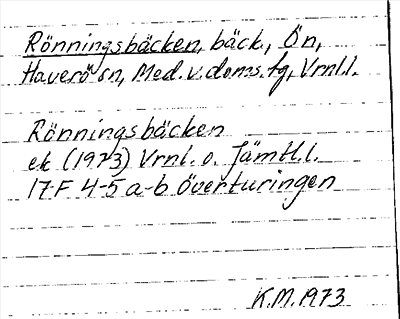 Rönningsbäcken, bäck., Ön,
Haverö sn, Med. v. doms. tg, Vrnl.l.
Rönningsbäcken
ek (1973) Vrnl. o. Jämtl.l.
17 F 4-5 a-b Överturingen
K.M. 1973